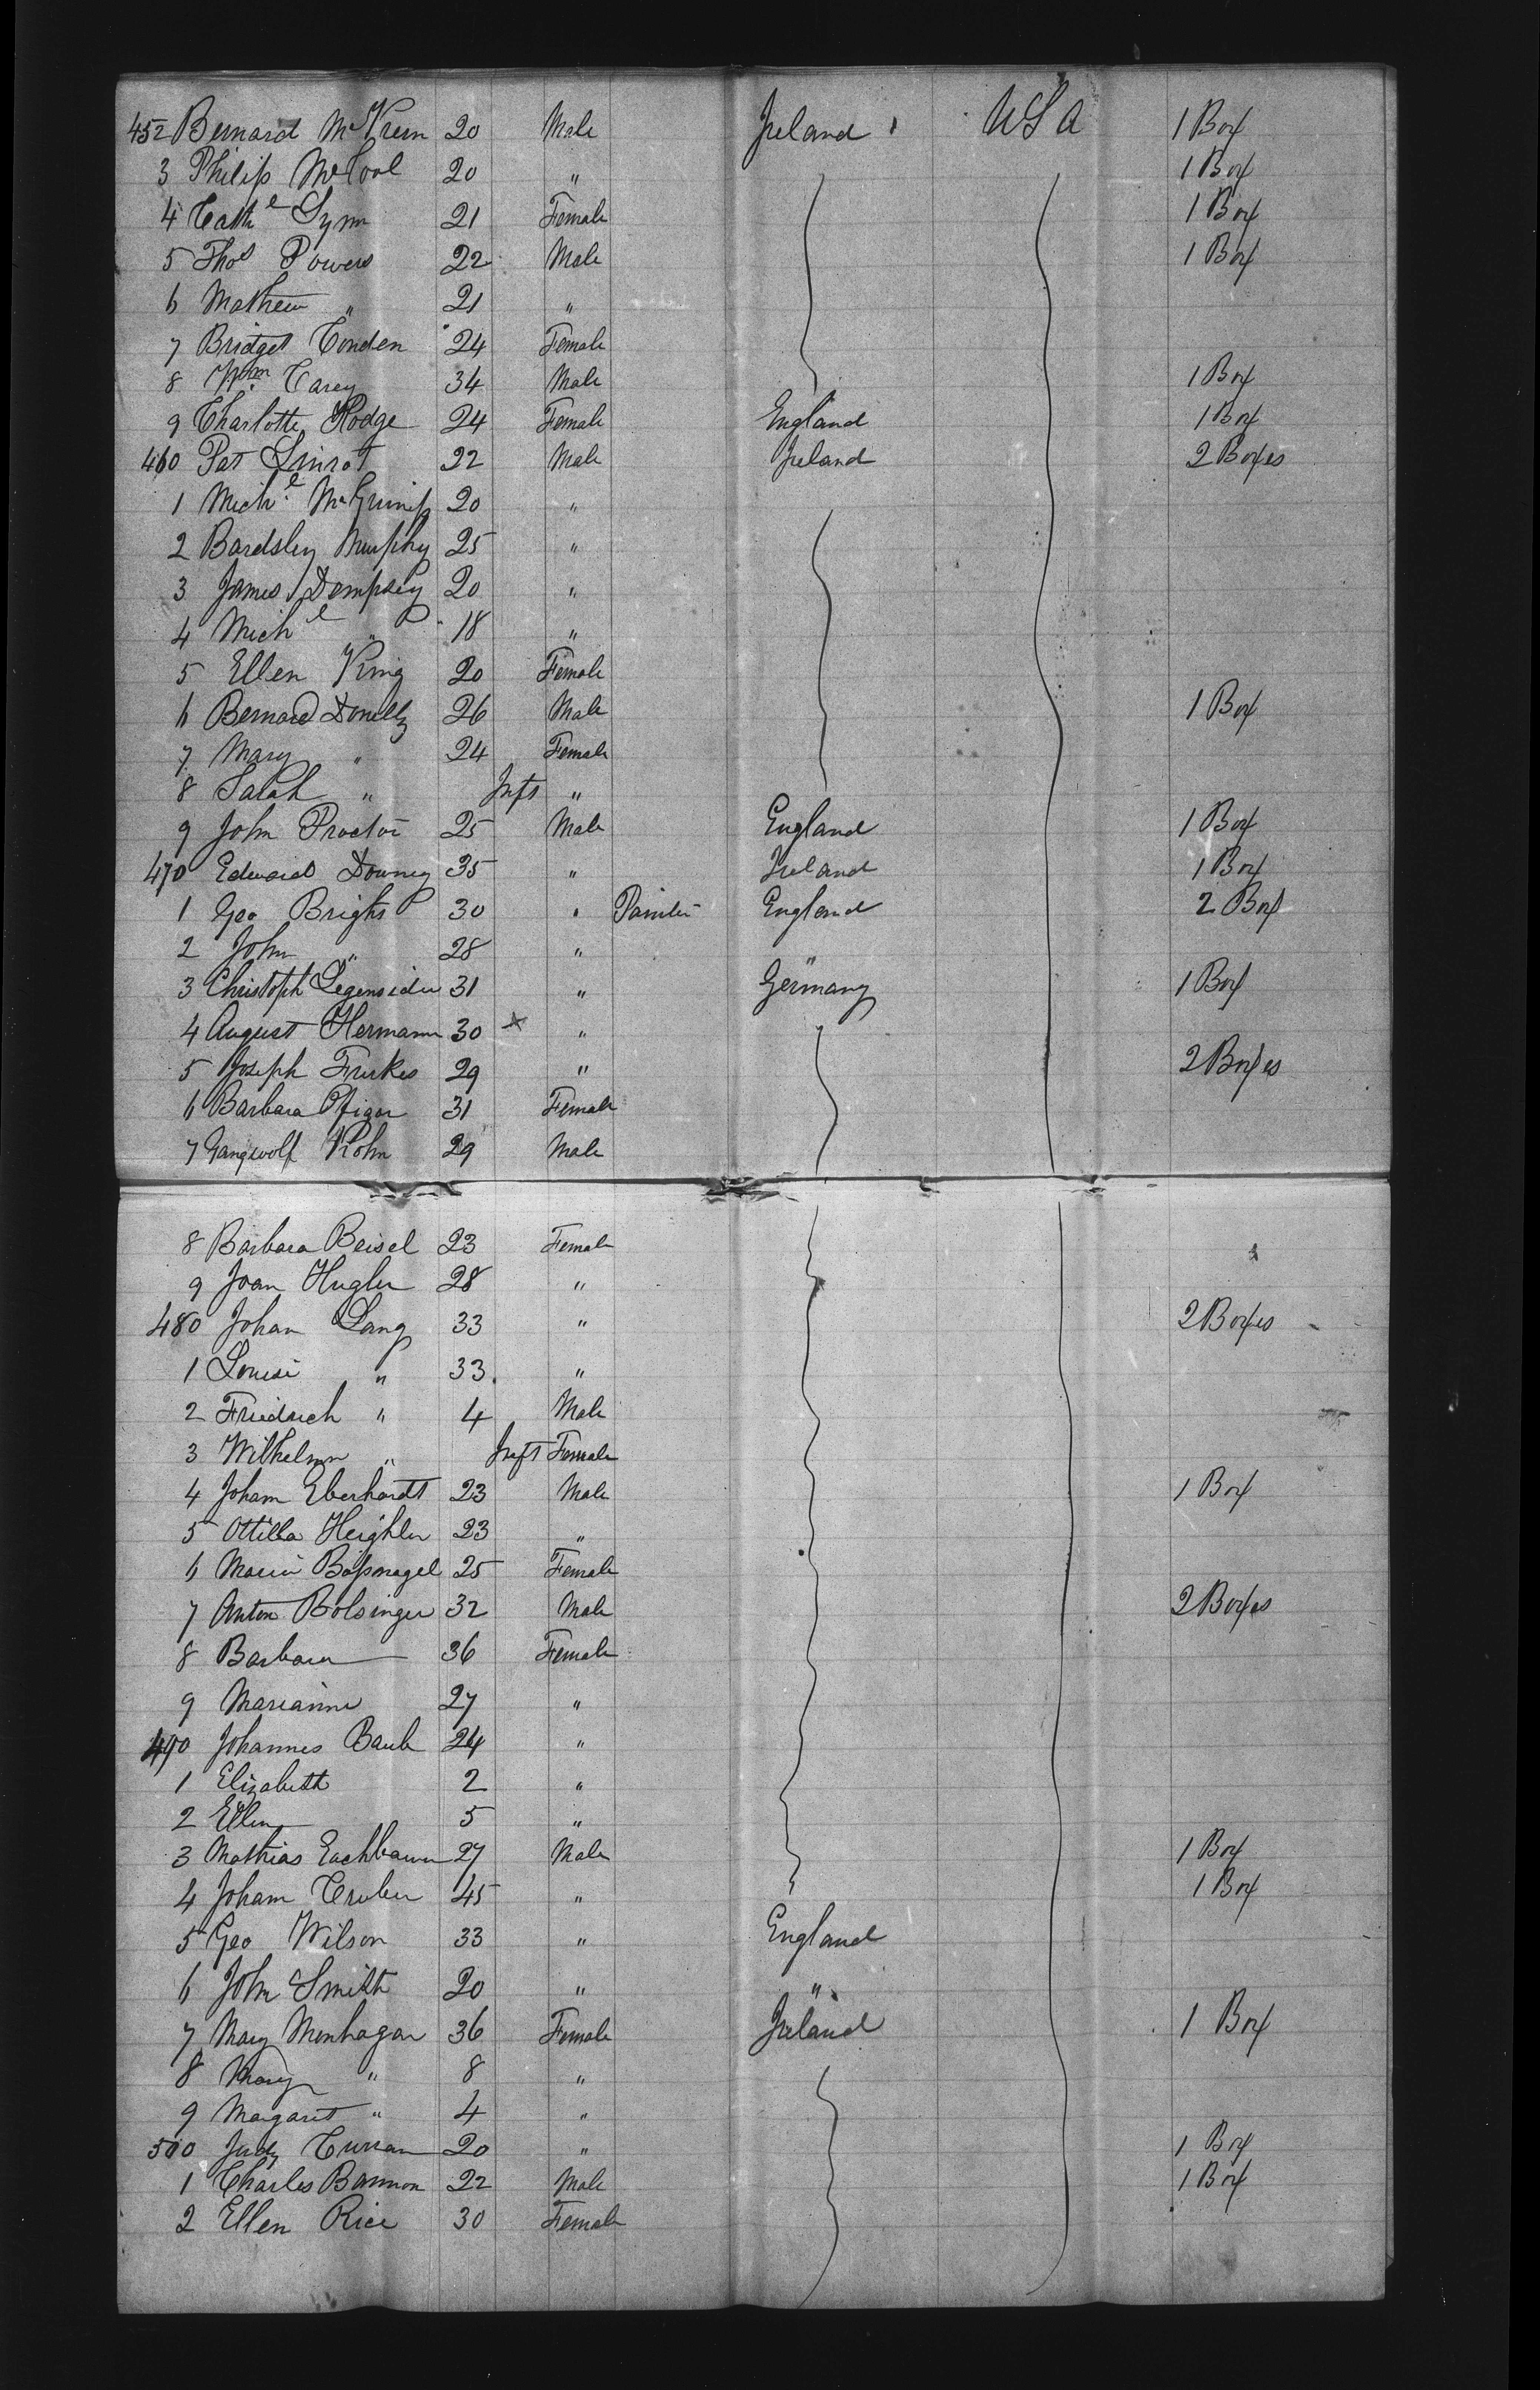 452 Bernard McKeen 20 Male Ireland USA 1 Box
3 Philip McCool 20 " 1 Box
4 Cathe Lynn 21 Female 1 Box
5 Thos Powers 22 Male 1 Box
6 Mathew " 21 "
7 Bridget Conden 24 Female
8 Wm Carey 34 Male 1 Box
9 Charlotte Hodge 24 Female England 1 Box
460 Pat 22 Male Ireland 2 Boxes
1 Michl 20 "
2 Bardsley Murphy 25 "
3 James Dempsey 20 "
4 Michl " 18 "
5 Ellen King 20 Female
6 Bernard Donelly 26 Male 1 Box
7 Mary " 24 Female
8 Sarah " Inft "
9 John Proctor 25 Male England 1 Box
470 Edward Downey 35 " Ireland 1 Box
1 Geo Bright 30 " Painter England 2 Box
2 John " 28 " "
3 Christoph 31 " Germany 1 Box
4 August Hermann 30 "
5 Joseph 29 " 2 Boxes
6 Barbara 31 Female
7 Gangwolf Kohn 29 Male
8 Barbara Beisel 23 Female
9 Joan Hugler 28 "
480 Johan Lang 33 " 2 Boxes
1 Louise " 33 "
2 Friedrich " 4 Male
3 Wilhelmn " Inft Female
4 Joham Eberhardt 23 Male 1 Box
5 Ottilla Heighler 23 "
6 Maria 25 Female
7 Anton Bolsinger 32 Male 2 Boxes
8 Barbara 36 Female
9 Marianne 27 "
490 Johannes Baule 24 "
1 Elizabeth 2 "
2 Ellen 5 "
3 Mathias Eachbaum 27 Male 1 Box
4 Joham Cruber 45 " 1 Box
5 Geo Wilson 33 " England
6 John Smith 20 " "
7 Mary Monhagan 36 Female Ireland 1 Box
8 Mary " 8 "
9 Margaret " 4 "
500 Judy Curran 20 " 1 Box
1 Charles Bannon 22 Male 1 Box
2 Ellen Rice 30 Female